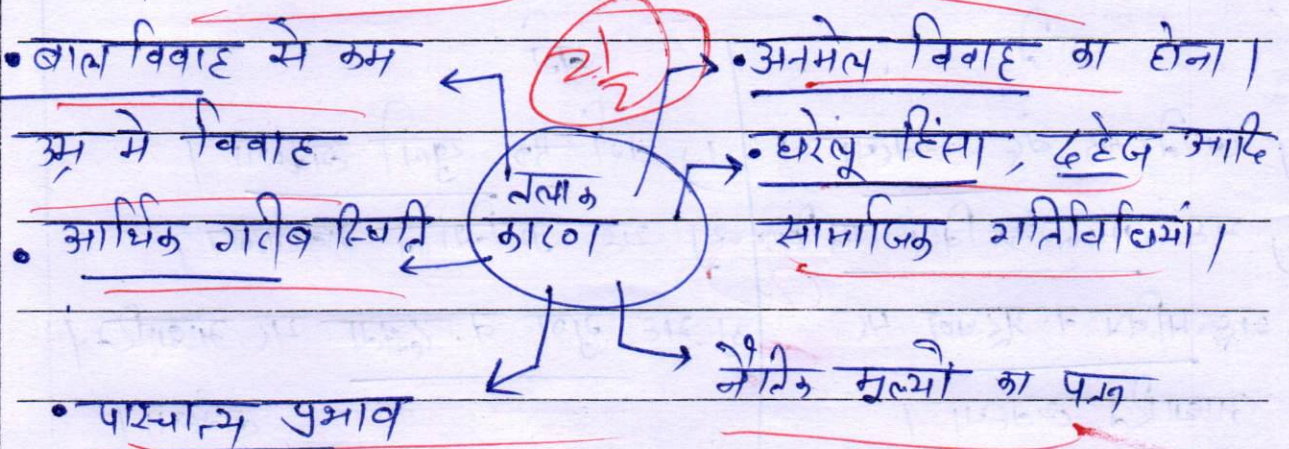 • बाल विवाह से कम
उम्र मे विवाह
• आर्थिक गरीब स्थिति
• पाश्चात्य प्रभाव
तलाक
कारण
2½
• अनमेल विवाह का होना।
• घरेलू हिंसा, दहेज आदि
सामाजिक गतिविधियां।
नैतिक मूल्यों का पतन